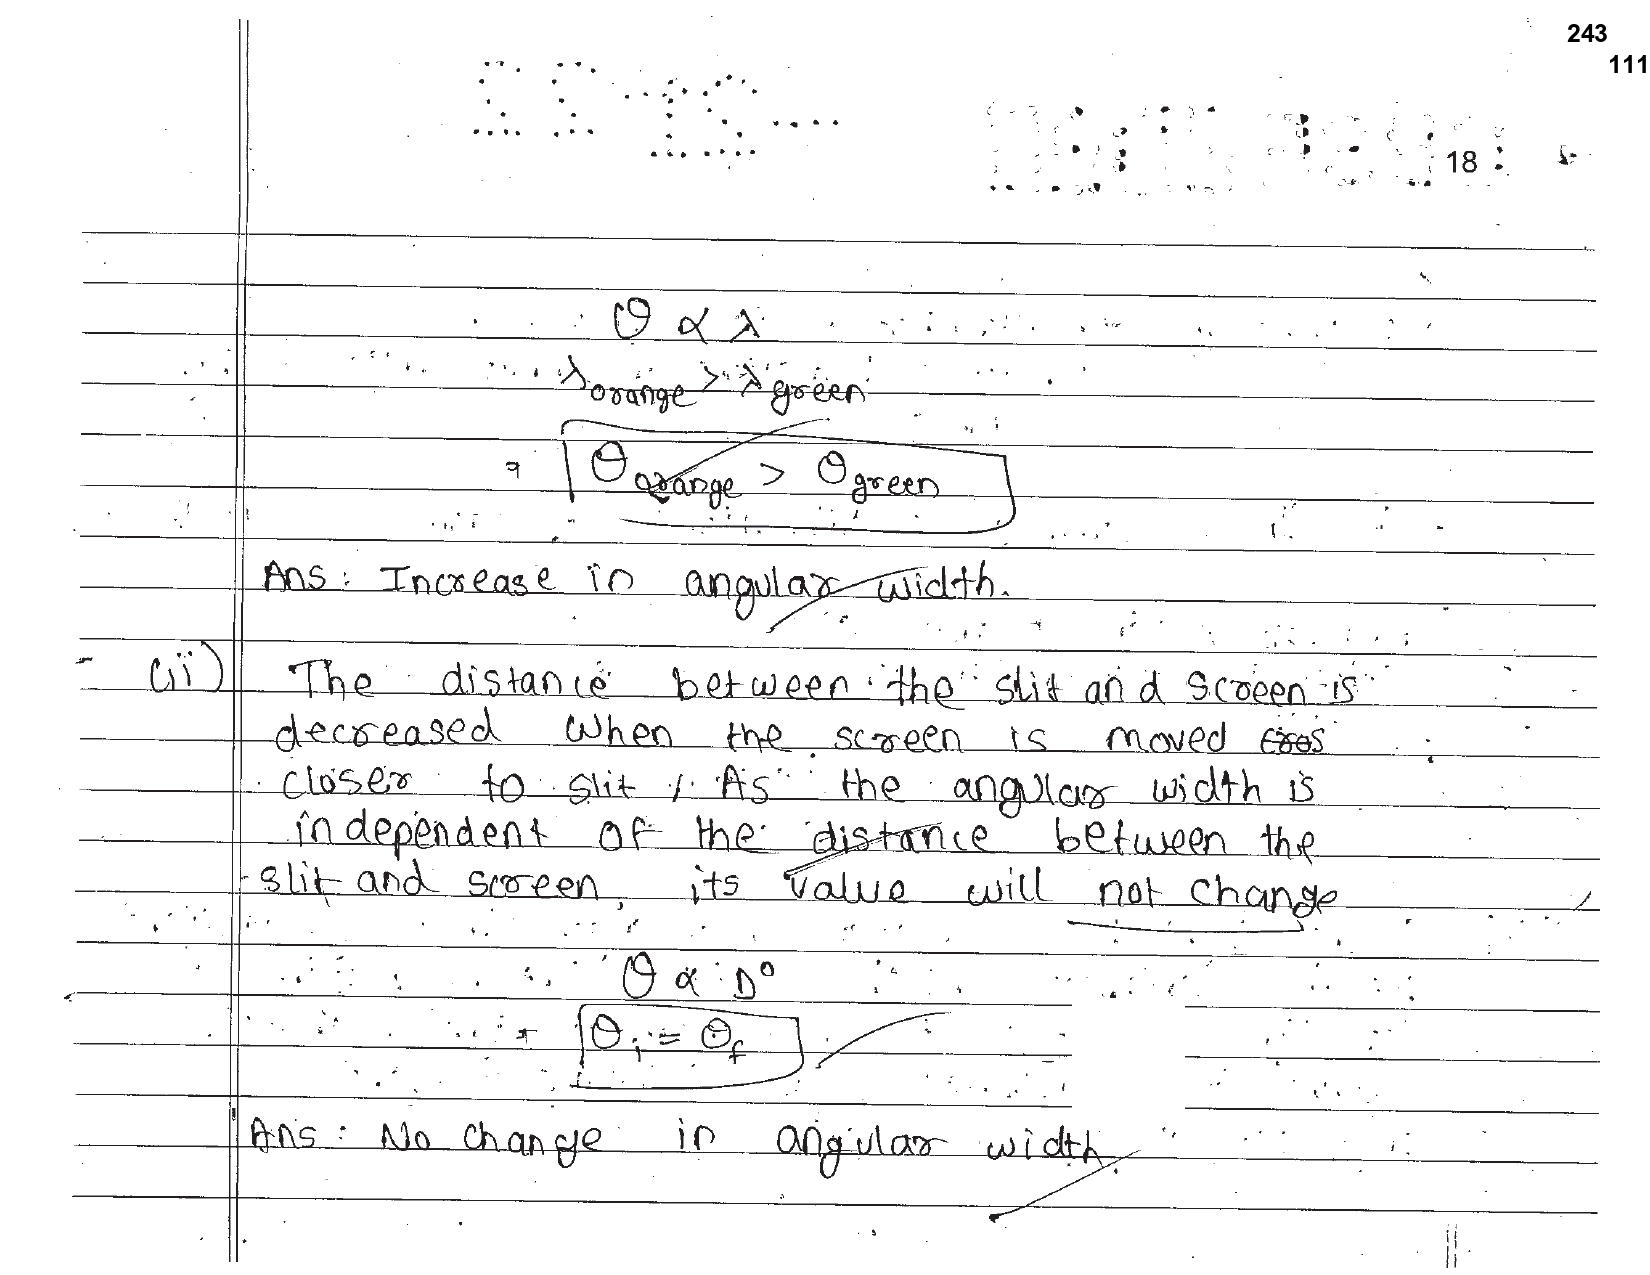 243
111
18
θ ∝ λ
λorange > λgreen
θorange > θgreen
Ans: Increase in angular width.
(ii) The distance between the slit and screen is
decreased when the screen is moved
closer to slit. As the angular width is
independent of the distance between the
slit and screen, its value will not change
θ ∝ D⁰
θi = θf
Ans: No change in angular width